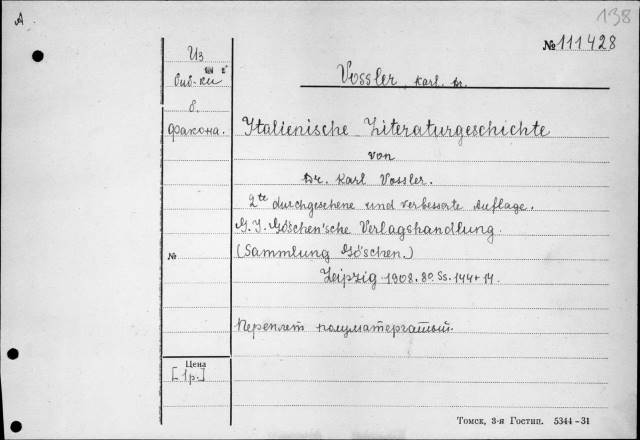 А
138
№ 111428
Из
Vossler, Karl. Dr.
биб-ки
в.
факона.
Italienische Literaturgeschichte
von
Dr. Karl Vossler.
2te durchgesehene und verbesserte Auflage.
G. J. Göschen'sche Verlagshandlung.
№
(Sammlung Göschen.)
Leipzig 1908. 8o. Ss. 144+14.
Переплет полуматерчатый.
Цена
[1 р.]
Томск, 3-я Гостип. 5344-31